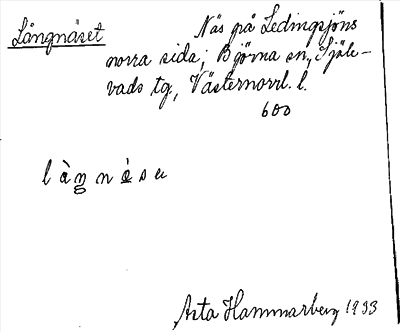 Långnäset
Näs på Ledingsjöns
norra sida; Björna sn, Själe-
vads tg, Västernorrl. l.
600
làgnésu
Asta Hammarberg 1933